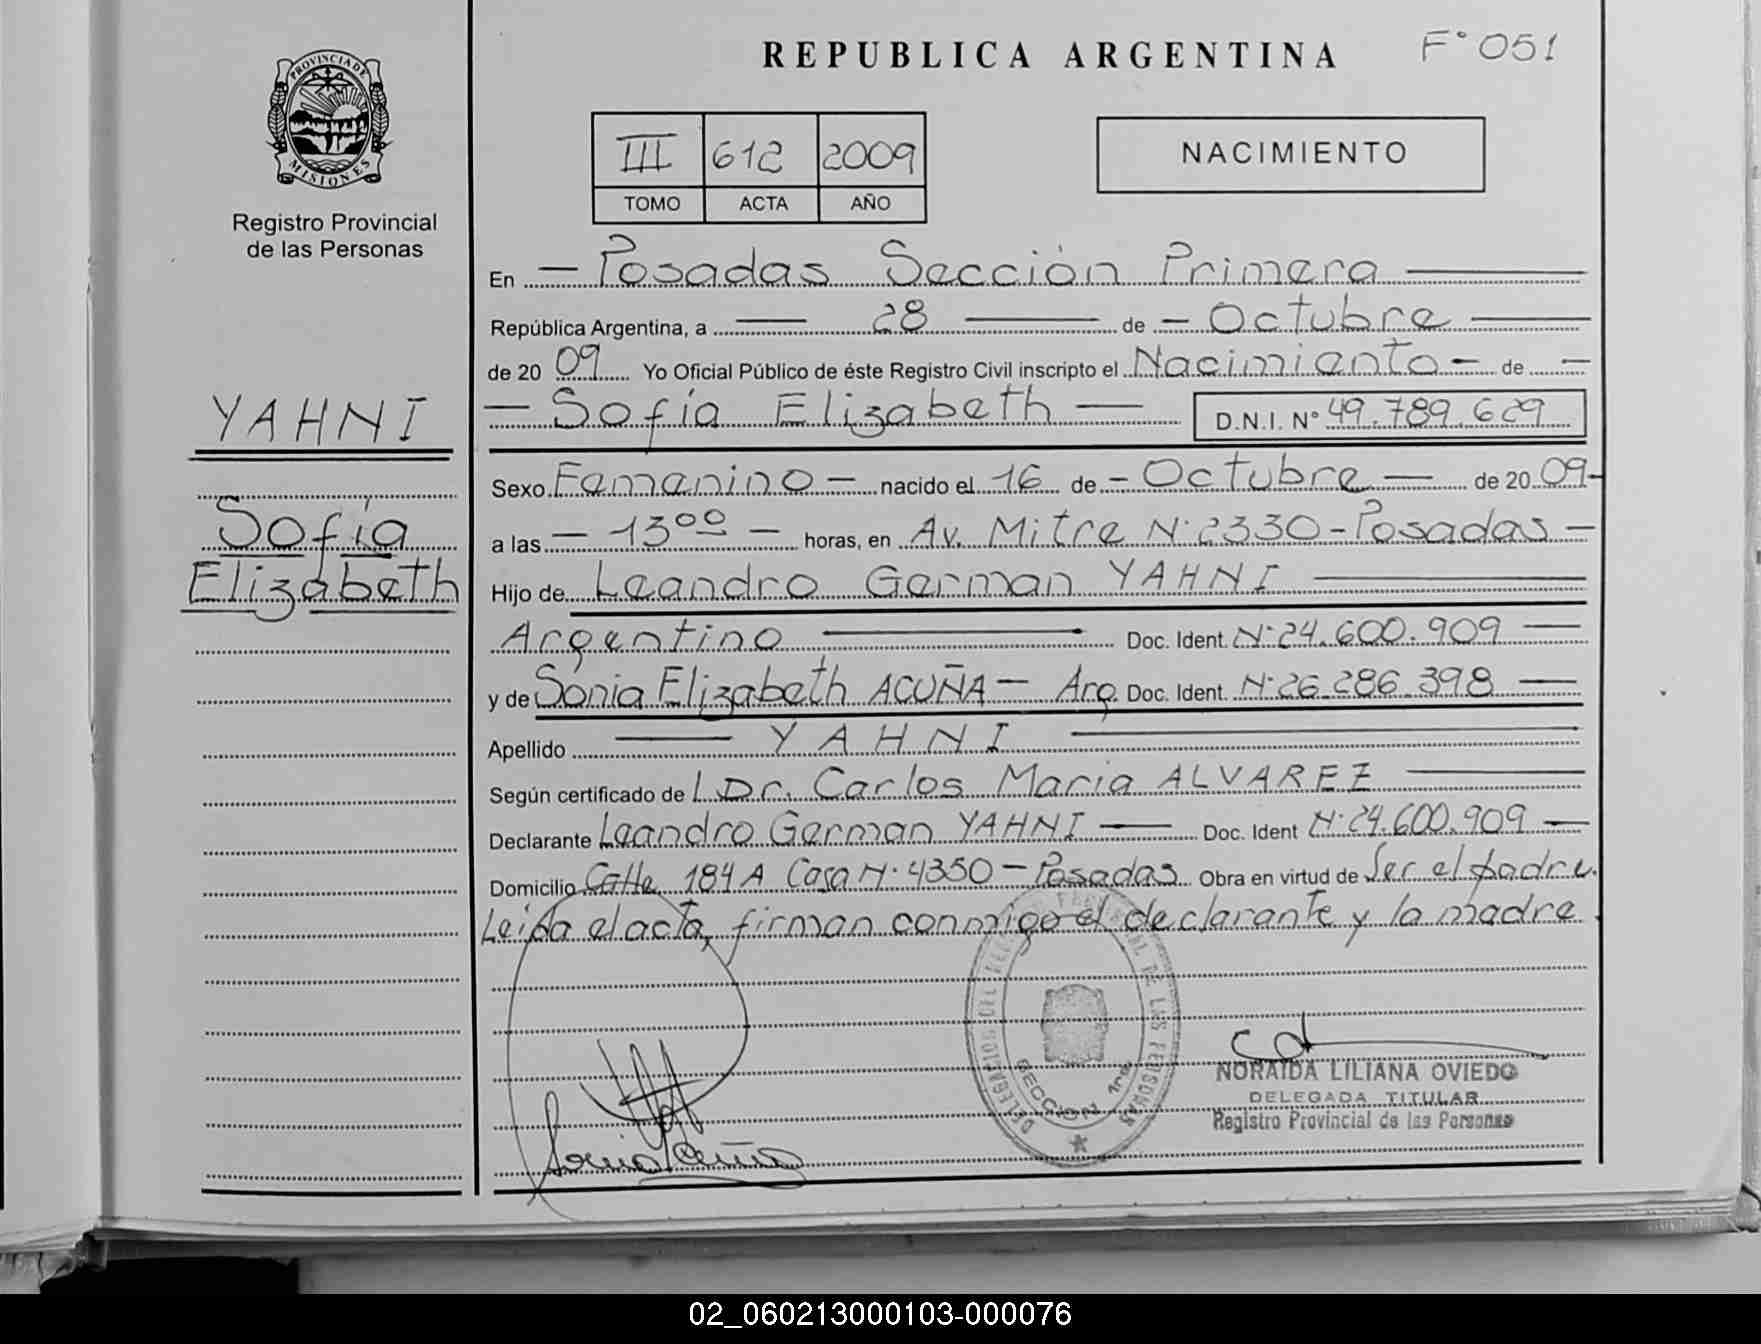 PROVINCIA DE
MISIONES
Registro Provincial
de las Personas
YAHNI
Sofía
Elizabeth
REPUBLICA ARGENTINA
F° 051
III 612 2009
TOMO ACTA AÑO
NACIMIENTO
En — Posadas Sección Primera —
República Argentina, a — 28 — de — Octubre —
de 20 09 Yo Oficial Público de éste Registro Civil inscripto el Nacimiento — de —
— Sofía Elizabeth — D.N.I. N° 49.789.629
Sexo Femenino — nacido el 16 de — Octubre — de 20 09 -
a las — 13 00 — horas, en Av. Mitre N° 2330 - Posadas —
Hijo de Leandro German YAHNI —
Argentino — Doc. Ident. N° 24.600.909 —
y de Sonia Elizabeth ACUÑA — Arg. Doc. Ident. N° 26.286.398 —
Apellido — YAHNI —
Según certificado de l Dr. Carlos Maria ALVAREZ —
Declarante Leandro German YAHNI — Doc. Ident N° 24.600.909 —
Domicilio Calle 184 A Casa N° 4350 - Posadas Obra en virtud de Ser el padre.
Leída el acta, firman conmigo el declarante y la madre.
SECCION 1ra
Sonia Acuña
NORAIDA LILIANA OVIEDO
DELEGADA TITULAR
Registro Provincial de las Personas
02_060213000103-000076